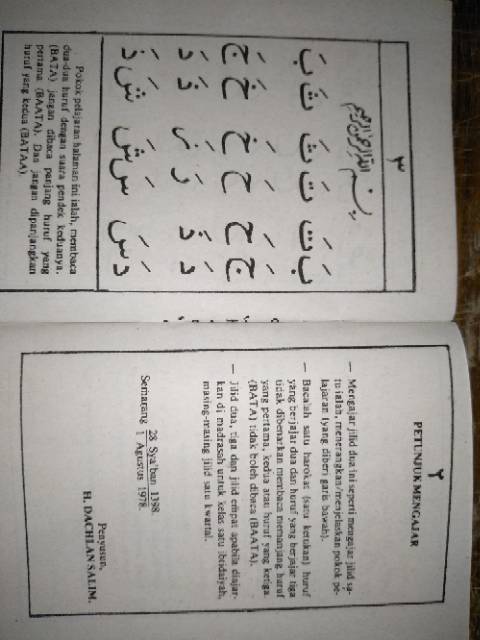 ٢
PETUNJUK MENGAJAR
— Mengajar jilid dua ini seperti mengajar jilid sa-
tu ialah, menerangkan/menjelaskan pokok pe-
lajaran (yang diberi garis bawah).
— Bacalah satu harokat (satu ketukan) huruf
yang berjajar dua dan huruf yang berjajar tiga
tidak dibenarkan membaca memanjang huruf
yang pertama, kedua atau huruf yang ketiga.
(BATA) tidak boleh dibaca (BAATA).
— Jilid dua, tiga dan jilid empat apabila diajar-
kan di madrasah untuk kelas satu ibtidaiyah,
masing-masing jilid satu kwartal.
28 Sya'ban 1398.
Semarang
1 Agustus 1978.
Penyusun,
H. DACHLAN SALIM.
٣
بسم الله الرحمن الرحيم
بَتَ تَثَ ثَبَ
Pokok pelajaran halaman ini ialah, membaca
dua-dua huruf dengan suara pendek keduanya.
(BATA) jangan dibaca panjang huruf yang
pertama (BAATA). Dan jangan dipanjangkan
huruf yang kedua (BATAA).